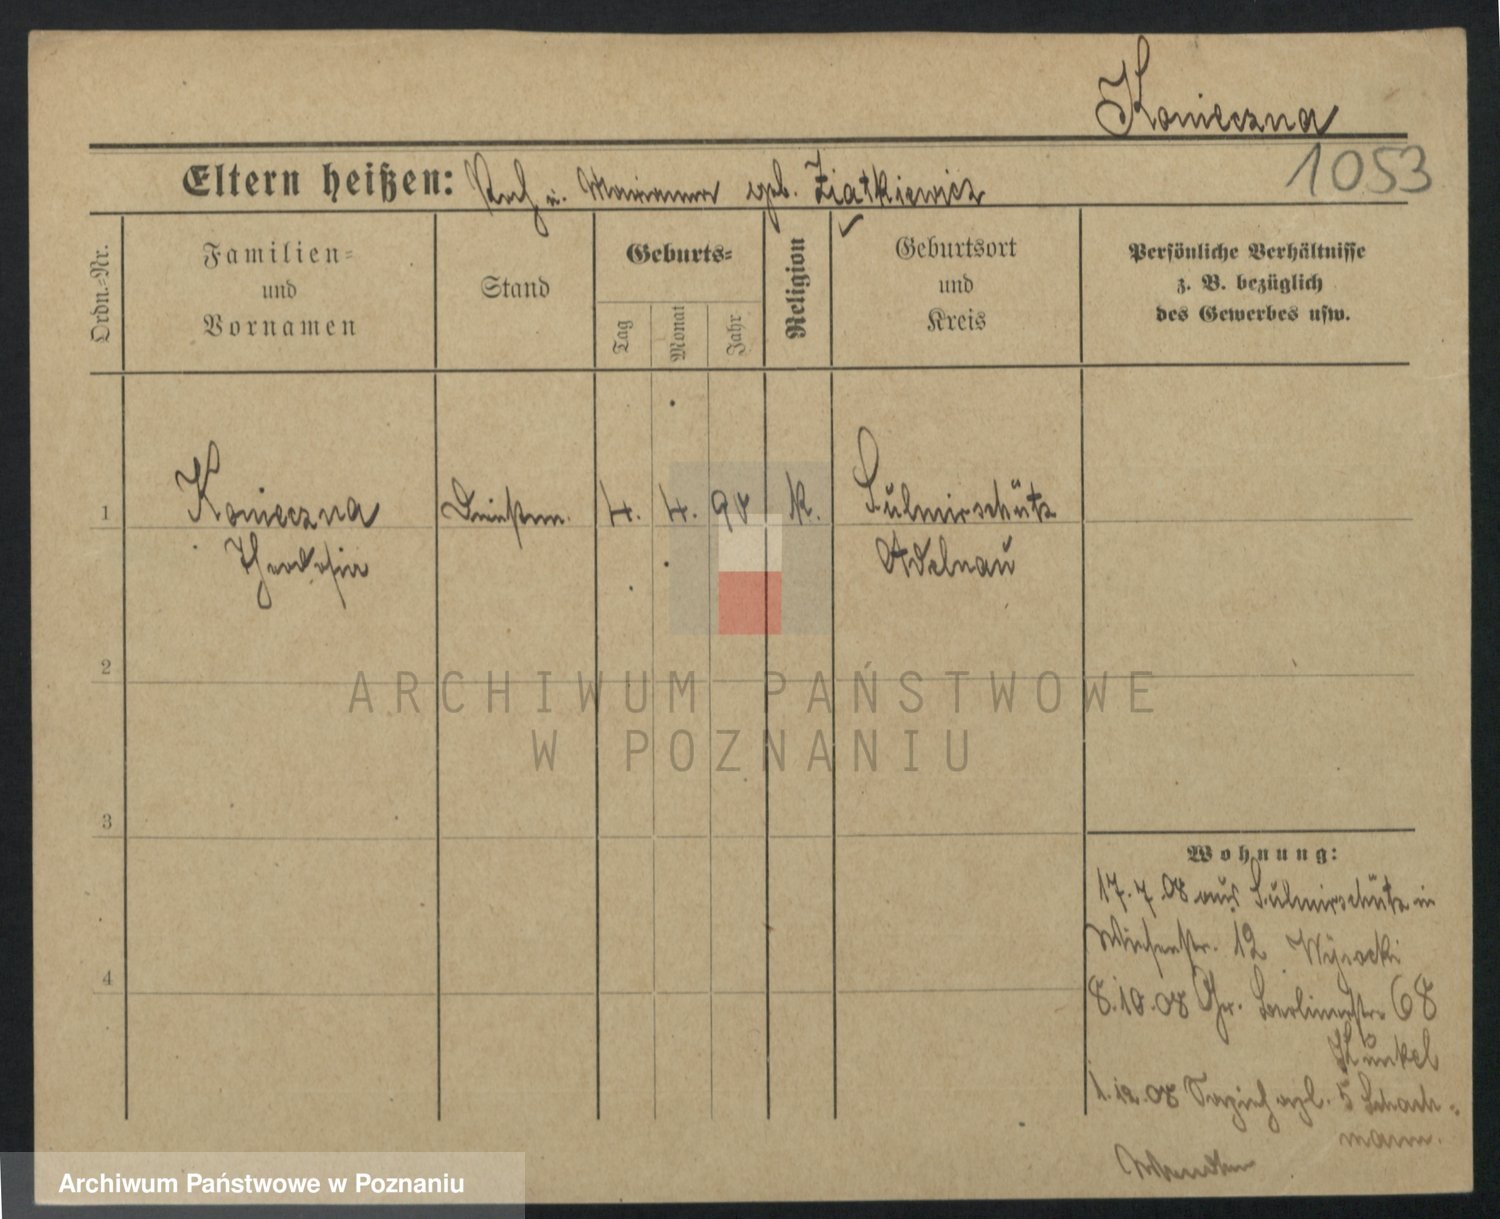 Konieczna
1053
Eltern heißen: Roch u. Marianna geb. Ziatkiewicz
Ordn.-Nr.
Familien-
und
Vornamen
Stand
Geburts-
Tag
Monat
Jahr
Religion
Geburtsort
und
Kreis
Persönliche Verhältnisse
z. B. bezüglich
des Gewerbes usw.
1
Konieczna
Dienstm.
4.
4.
90
k.
Sulmirschütz
Theodosia
Adelnau
2
ARCHIWUM PAŃSTWOWE
W POZNANIU
3
Wohnung:
17.7.08 aus Sulmirschütz in
Wiesenstr. 12 Wysocki
4
8.10.08 Gr. Berlinerstr. 68
Kunkel
1.12.08 5 Schach-
mann.
Archiwum Państwowe w Poznaniu